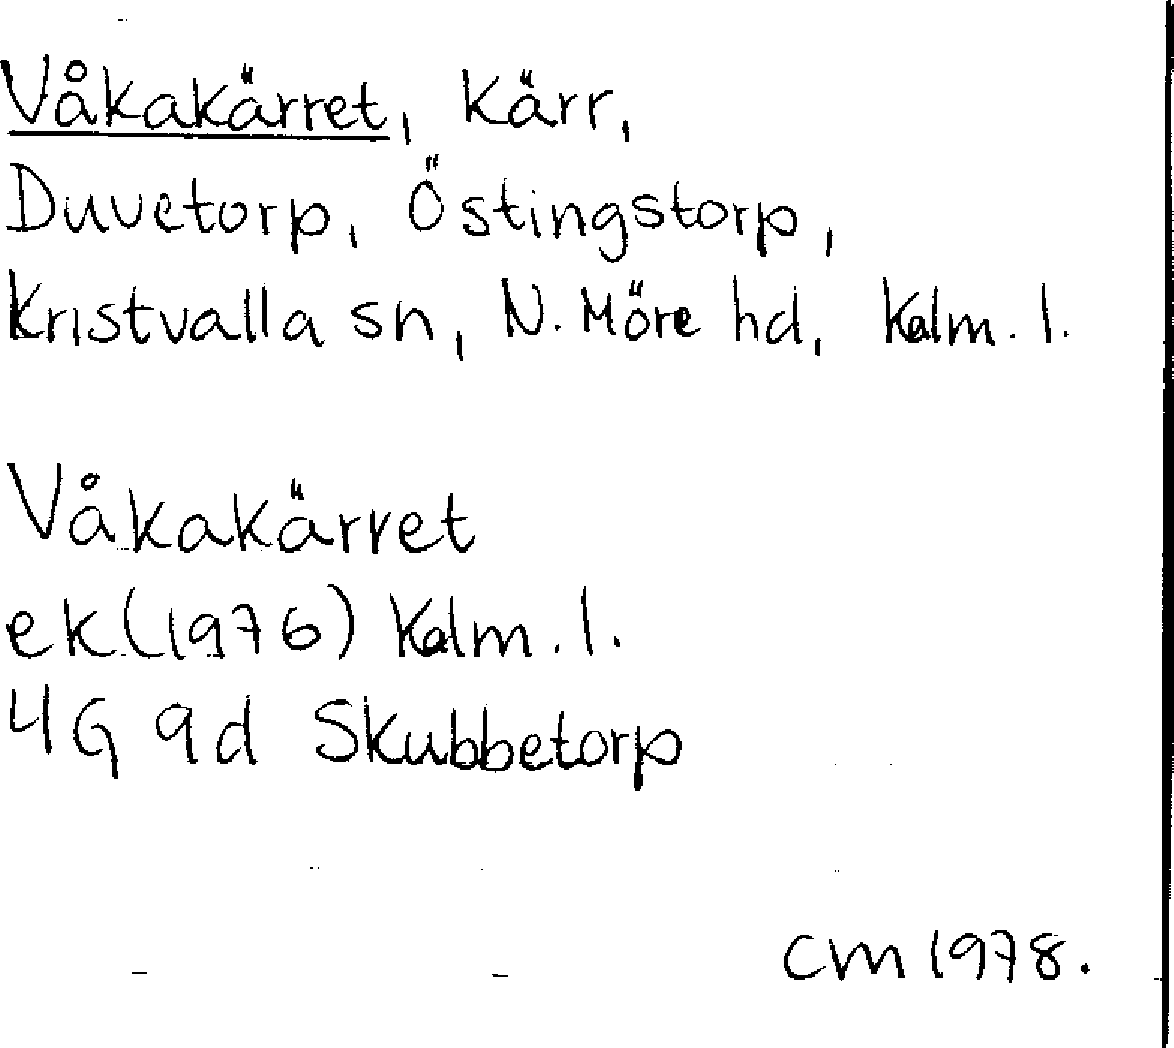 Våkakärret, Kärr,
Duvetorp, Östingstorp,
Kristvalla sn, N. Möre hd, Kalm. l.
Våkakärret
ek (1976) Kalm. l.
4G 9d Skubbetorp
CM 1978.